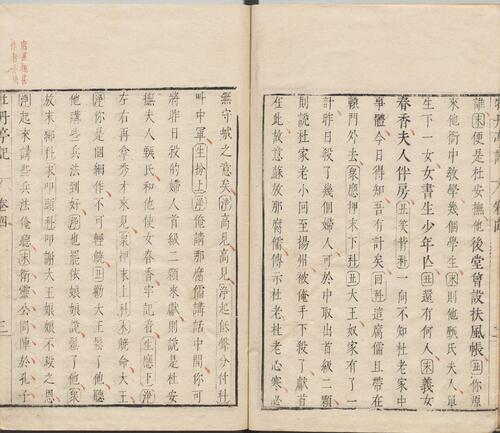 誰末便是杜安撫他後堂曾設扶風帳丑你原
來他衙中敎學幾個學生末則他甄氏夫人單
生下一女女書生少年亡丑還有何人末義女
春香夫人伴房丑笑背科一向不知杜老家中
事體今日得知吾有計矣回科這腐儒且帶在
轅門外去衆應押末下科丑大王奴家有了一
計昨日殺了幾個婦人可於中取出首級二顆
則說杜家老小回至揚州被俺手下殺了獻首
在此故意蘇放那腐儒傳示杜老杜老心寒必
無守城之意矣淨高見高見淨起低聲分付科
叫中軍生扮上淨俺請那腐儒講話中間你可
將昨日殺的婦人首級二顆來獻則說是杜安
撫夫人甄氏和他使女春香牢記着生應下淨
左右再拿秀才來見衆押末上科末饒命大王
淨你是個細作不可輕饒丑勸大王鬆了他聽
他講些兵法到好淨也罷依娘娘說鬆了他衆
放末綁科末叩頭科叩謝大王娘娘不殺之恩
淨起來講些兵法俺聽末衛靈公問陣於孔子
牡丹亭記
卷四
三